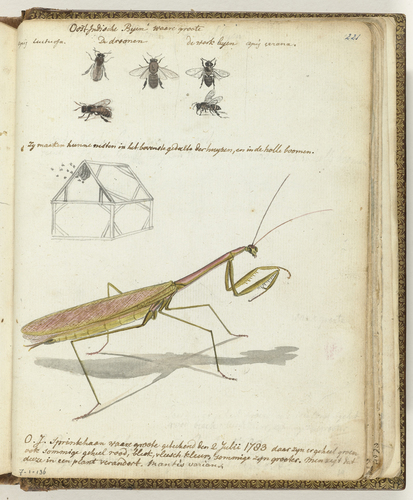 Oost-Indische Byen waare groote
221
De droonen
de werk byen
Zij maaken hunne nesten in het bovenste gedeelte der huysen, en in de holle boomen.
O. J. Sprinkhaan waare groote getekend den 2 Julij 1783 daar zyn er geheel groen
ook sommige geheel rood, bleek, vleesch kleur, sommige zyn grooter. Men zegt dat
deeze in een plant verandert. Mantis